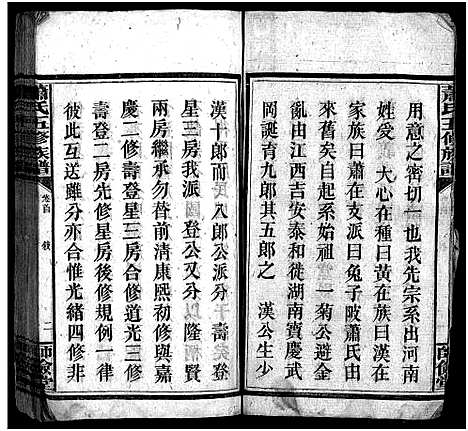 蕭氏五修族譜
用意之密切一也我先宗系出河南
姓受 大心在種曰黃在族曰漢在
家族曰蕭在支派曰兔子陂蕭氏由
來舊矣自起系始大宗一菊公避金
岡誕育九郎其五郎之 漢公生少
和從江西吉安泰和從湖南寶慶武
漢十郎而八郎公派分 壽
星三房我派 國登公又分以隆
兩房繼承勿替前清康熙初修與嘉
慶二修壽登星三房合修道光三修
壽登二房先修星房後修規例一律
彼此互送雖分亦合惟光緒四修非
蕭氏五修族譜
卷首
二
師儉堂
師儉堂